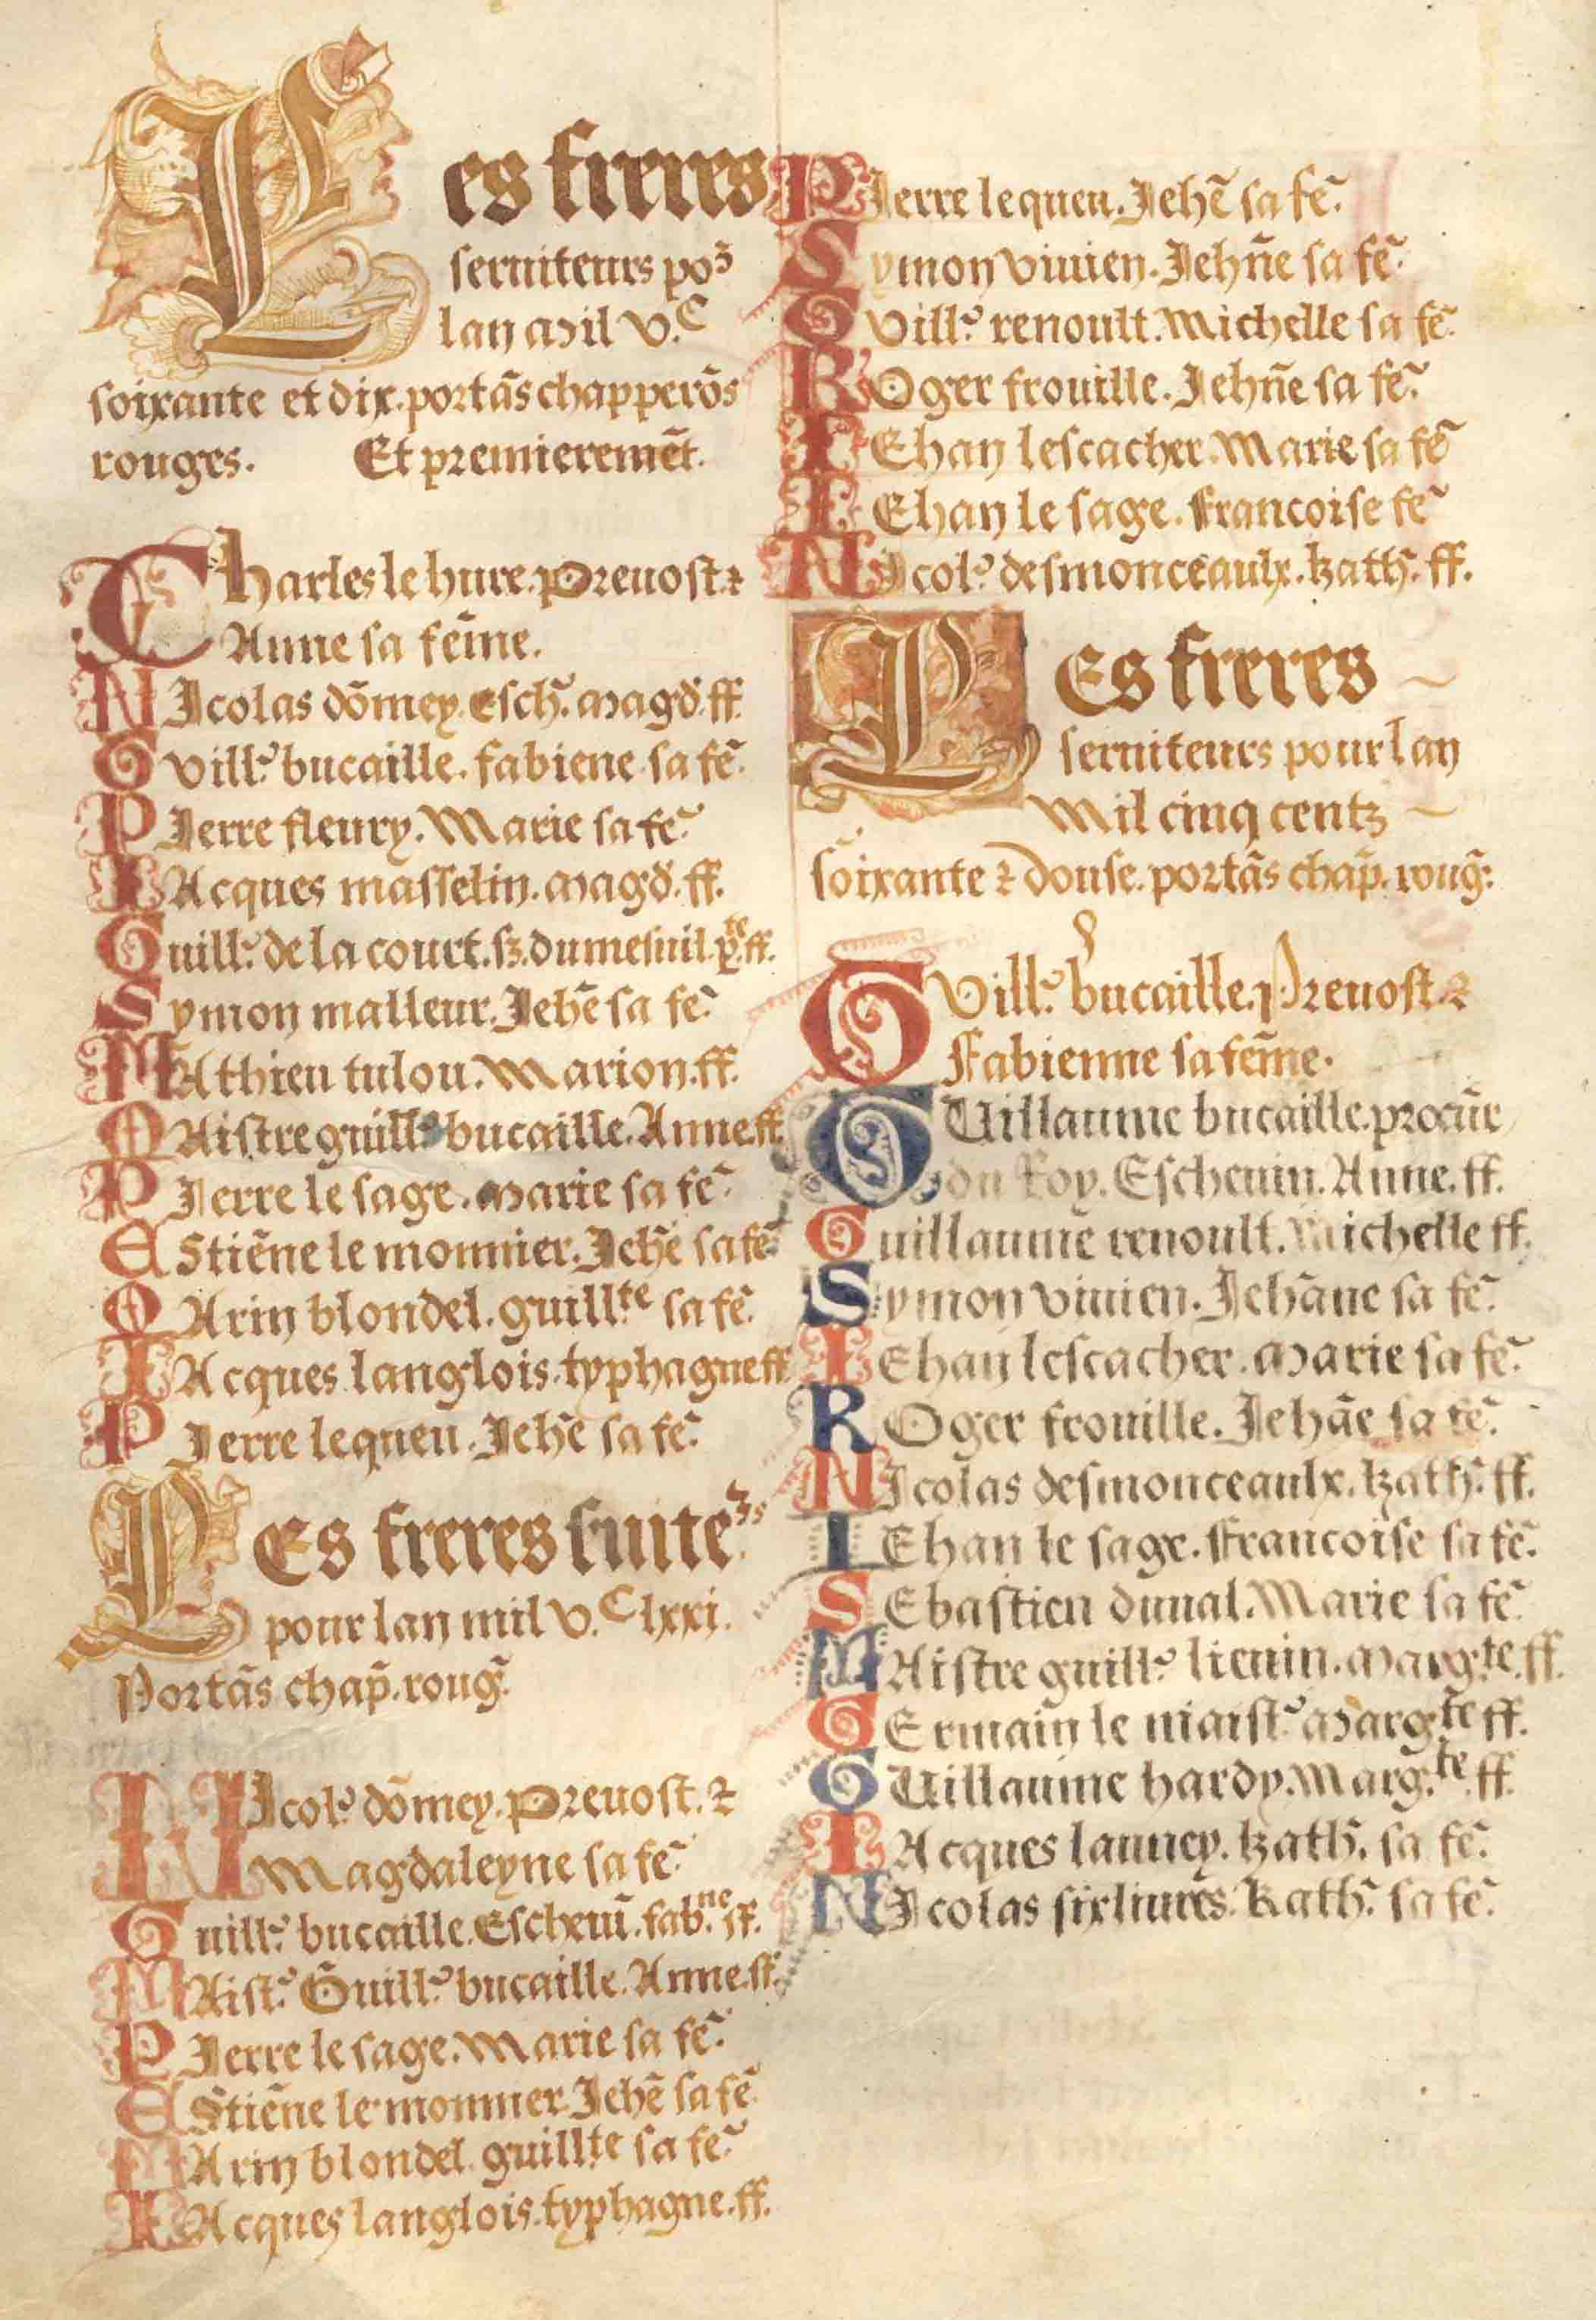 Les freres
seruiteurs po᷑
lan mil v.C
soixante et dix. portãs chapperõs
rouges. Et premieremẽt.
Charles le hure. Preuost. ⁊
Anne sa fẽme.
NIcolas dõmey. Esch. magd. ff.
Guill. bucaille. fabiene sa fẽ.
PIerre fleury. Marie sa fẽ.
IAcques masselin. magd. ff.
Guill. de la court. sr. dumesnil. p.te ff.
Symon malleur. Jehẽ sa fẽ.
MAthieu tulou. Marion. ff.
MAistre guill. bucaille. Anne. ff.
PIerre le sage. Marie sa fẽ.
EStiẽne le monnier. Jehẽ sa fẽ.
MArin blondel. guillte sa fẽ.
IAcques langlois. typhagne ff.
PIerre lequeu. Jehẽ sa fẽ.
LEs freres suite᷑s
pour lan mil v.C lxxi.
Portãs chap̃. roug̃.
NIcol. dõmey. Preuost. ⁊
Magdaleyne sa fẽ.
Guill. bucaille. Escheuĩ. fab.ne ff.
MAist. Guill. bucaille. Anne. ff.
PIerre le sage. Marie sa fẽ.
EStiẽne le monnier. Jehẽ sa fẽ.
MArin blondel. guillte sa fẽ.
IAcques langlois. typhagne. ff.
PIerre lequeu. Jehẽ sa fẽ.
Symon viuien. Jehñe sa fẽ.
Guill. renoult. Michelle sa fẽ.
ROger frouille. Jehñe sa fẽ.
IEhan lescacher. Marie sa fẽ
IEhan le sage. Francoise fẽ
NIcol. desmonceaulx. kath. ff.
LEs freres
seruiteurs pour lan
Mil cinq centz
soixante ⁊ douse. portãs chap̃. roug̃:
Guill. bucaille. Preuost. ⁊
Fabienne sa fẽme.
GUillaume bucaille. procũr
du Roy. Escheuin. Anne. ff.
Guillaume renoult. Michelle ff.
Symon viuien. Jehãne sa fẽ.
IEhan lescacher. Marie sa fẽ.
ROger frouille. Jehãe sa fẽ.
NIcolas desmonceaulx. kath. ff.
IEhan le sage. Francoise sa fẽ.
SEbastien duual. Marie sa fẽ
MAistre guill. lieuin. Margte. ff.
GErmain le maist. Margte ff.
GUillaume hardy. Marg.te. ff.
IAcques launey. kath. sa fẽ.
NIcolas sixliures. Kath. sa fẽ.